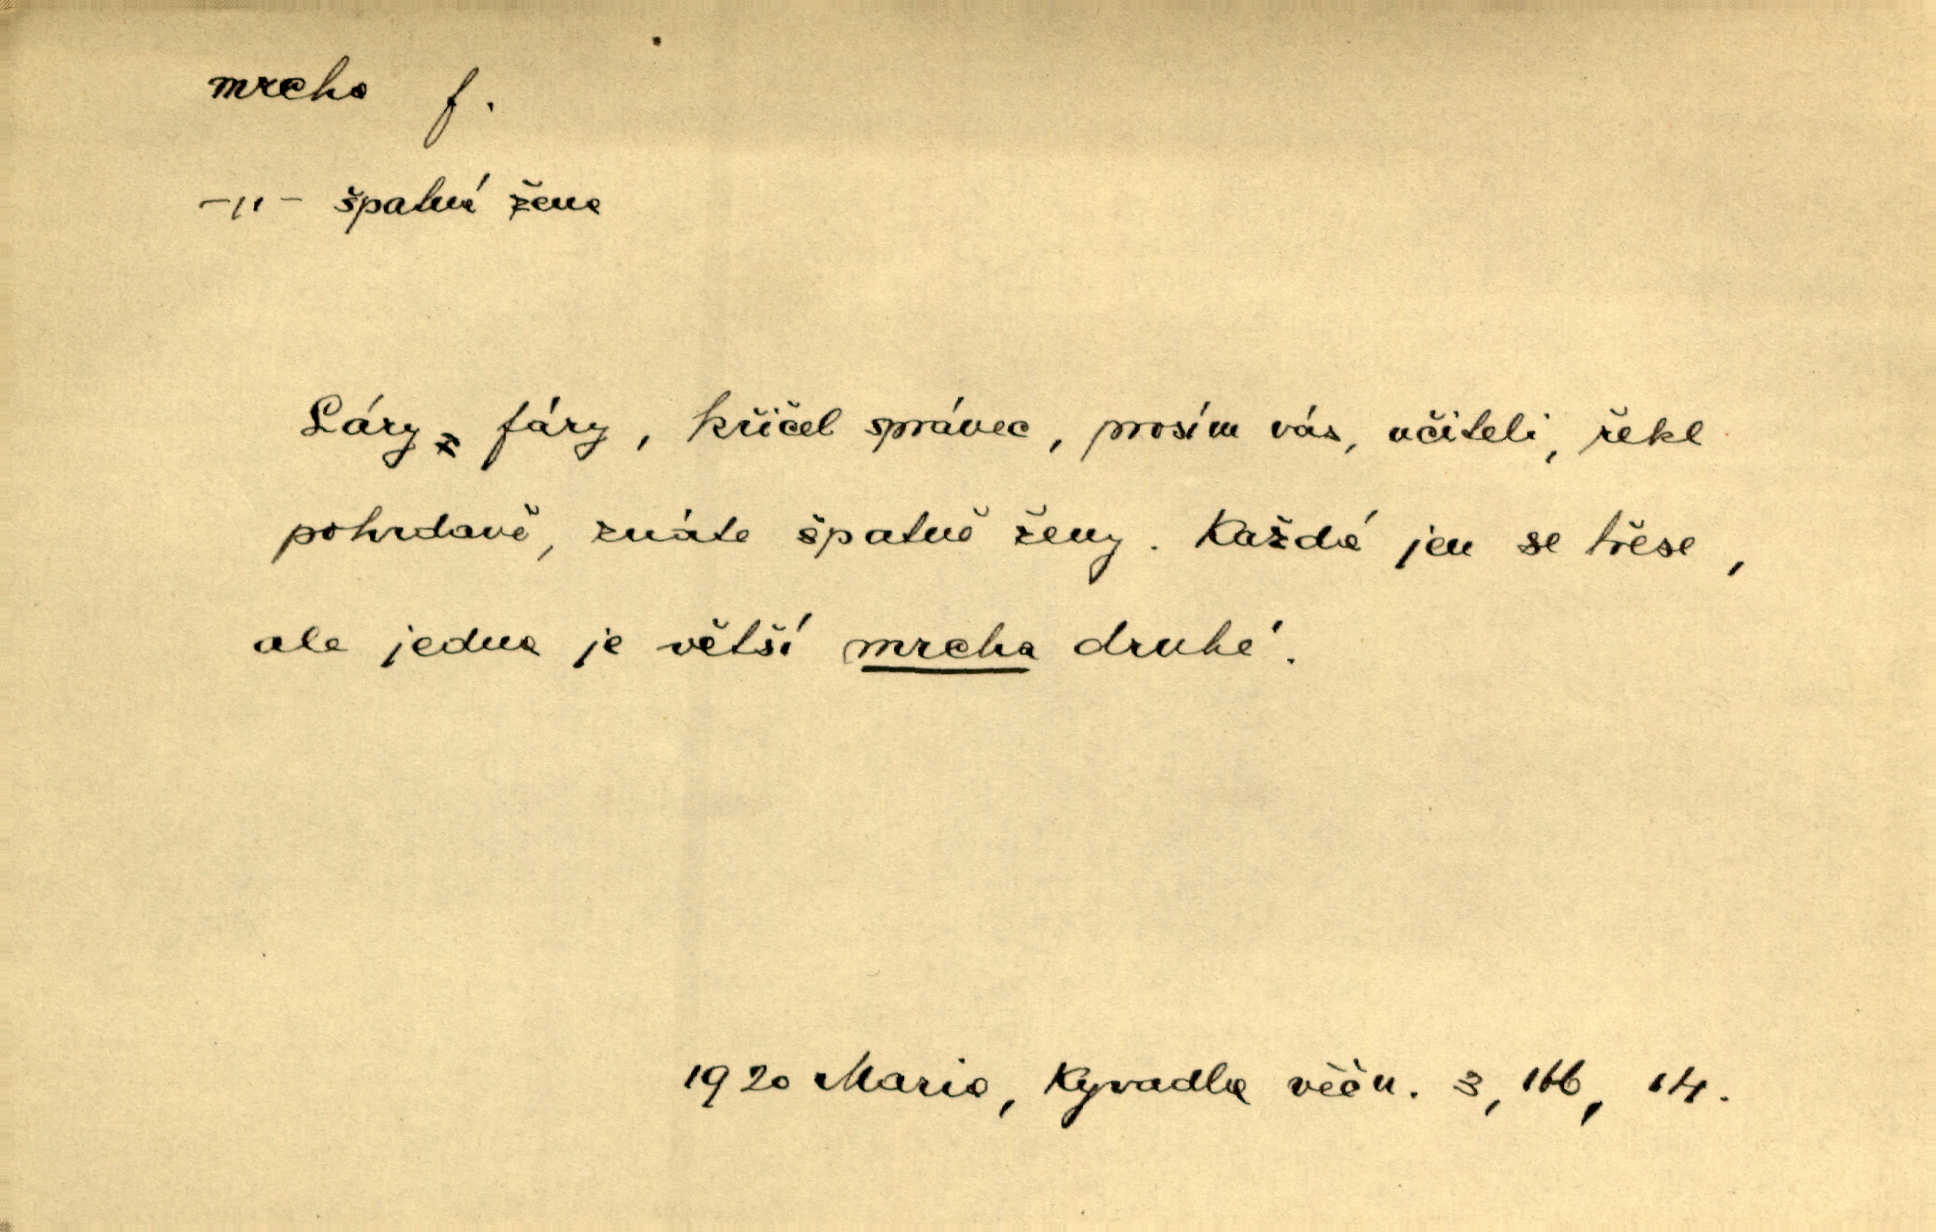 mrcha f.
–"– špatná žena
Láry fáry, křičel správec, prosím vás, učiteli, řekl
pohrdavě, znáte špatně ženy. Každá jen se třese,
ale jedna je větší mrcha druhé.
1920 Maria, Kyvadla věčn. 3, 166, 14.